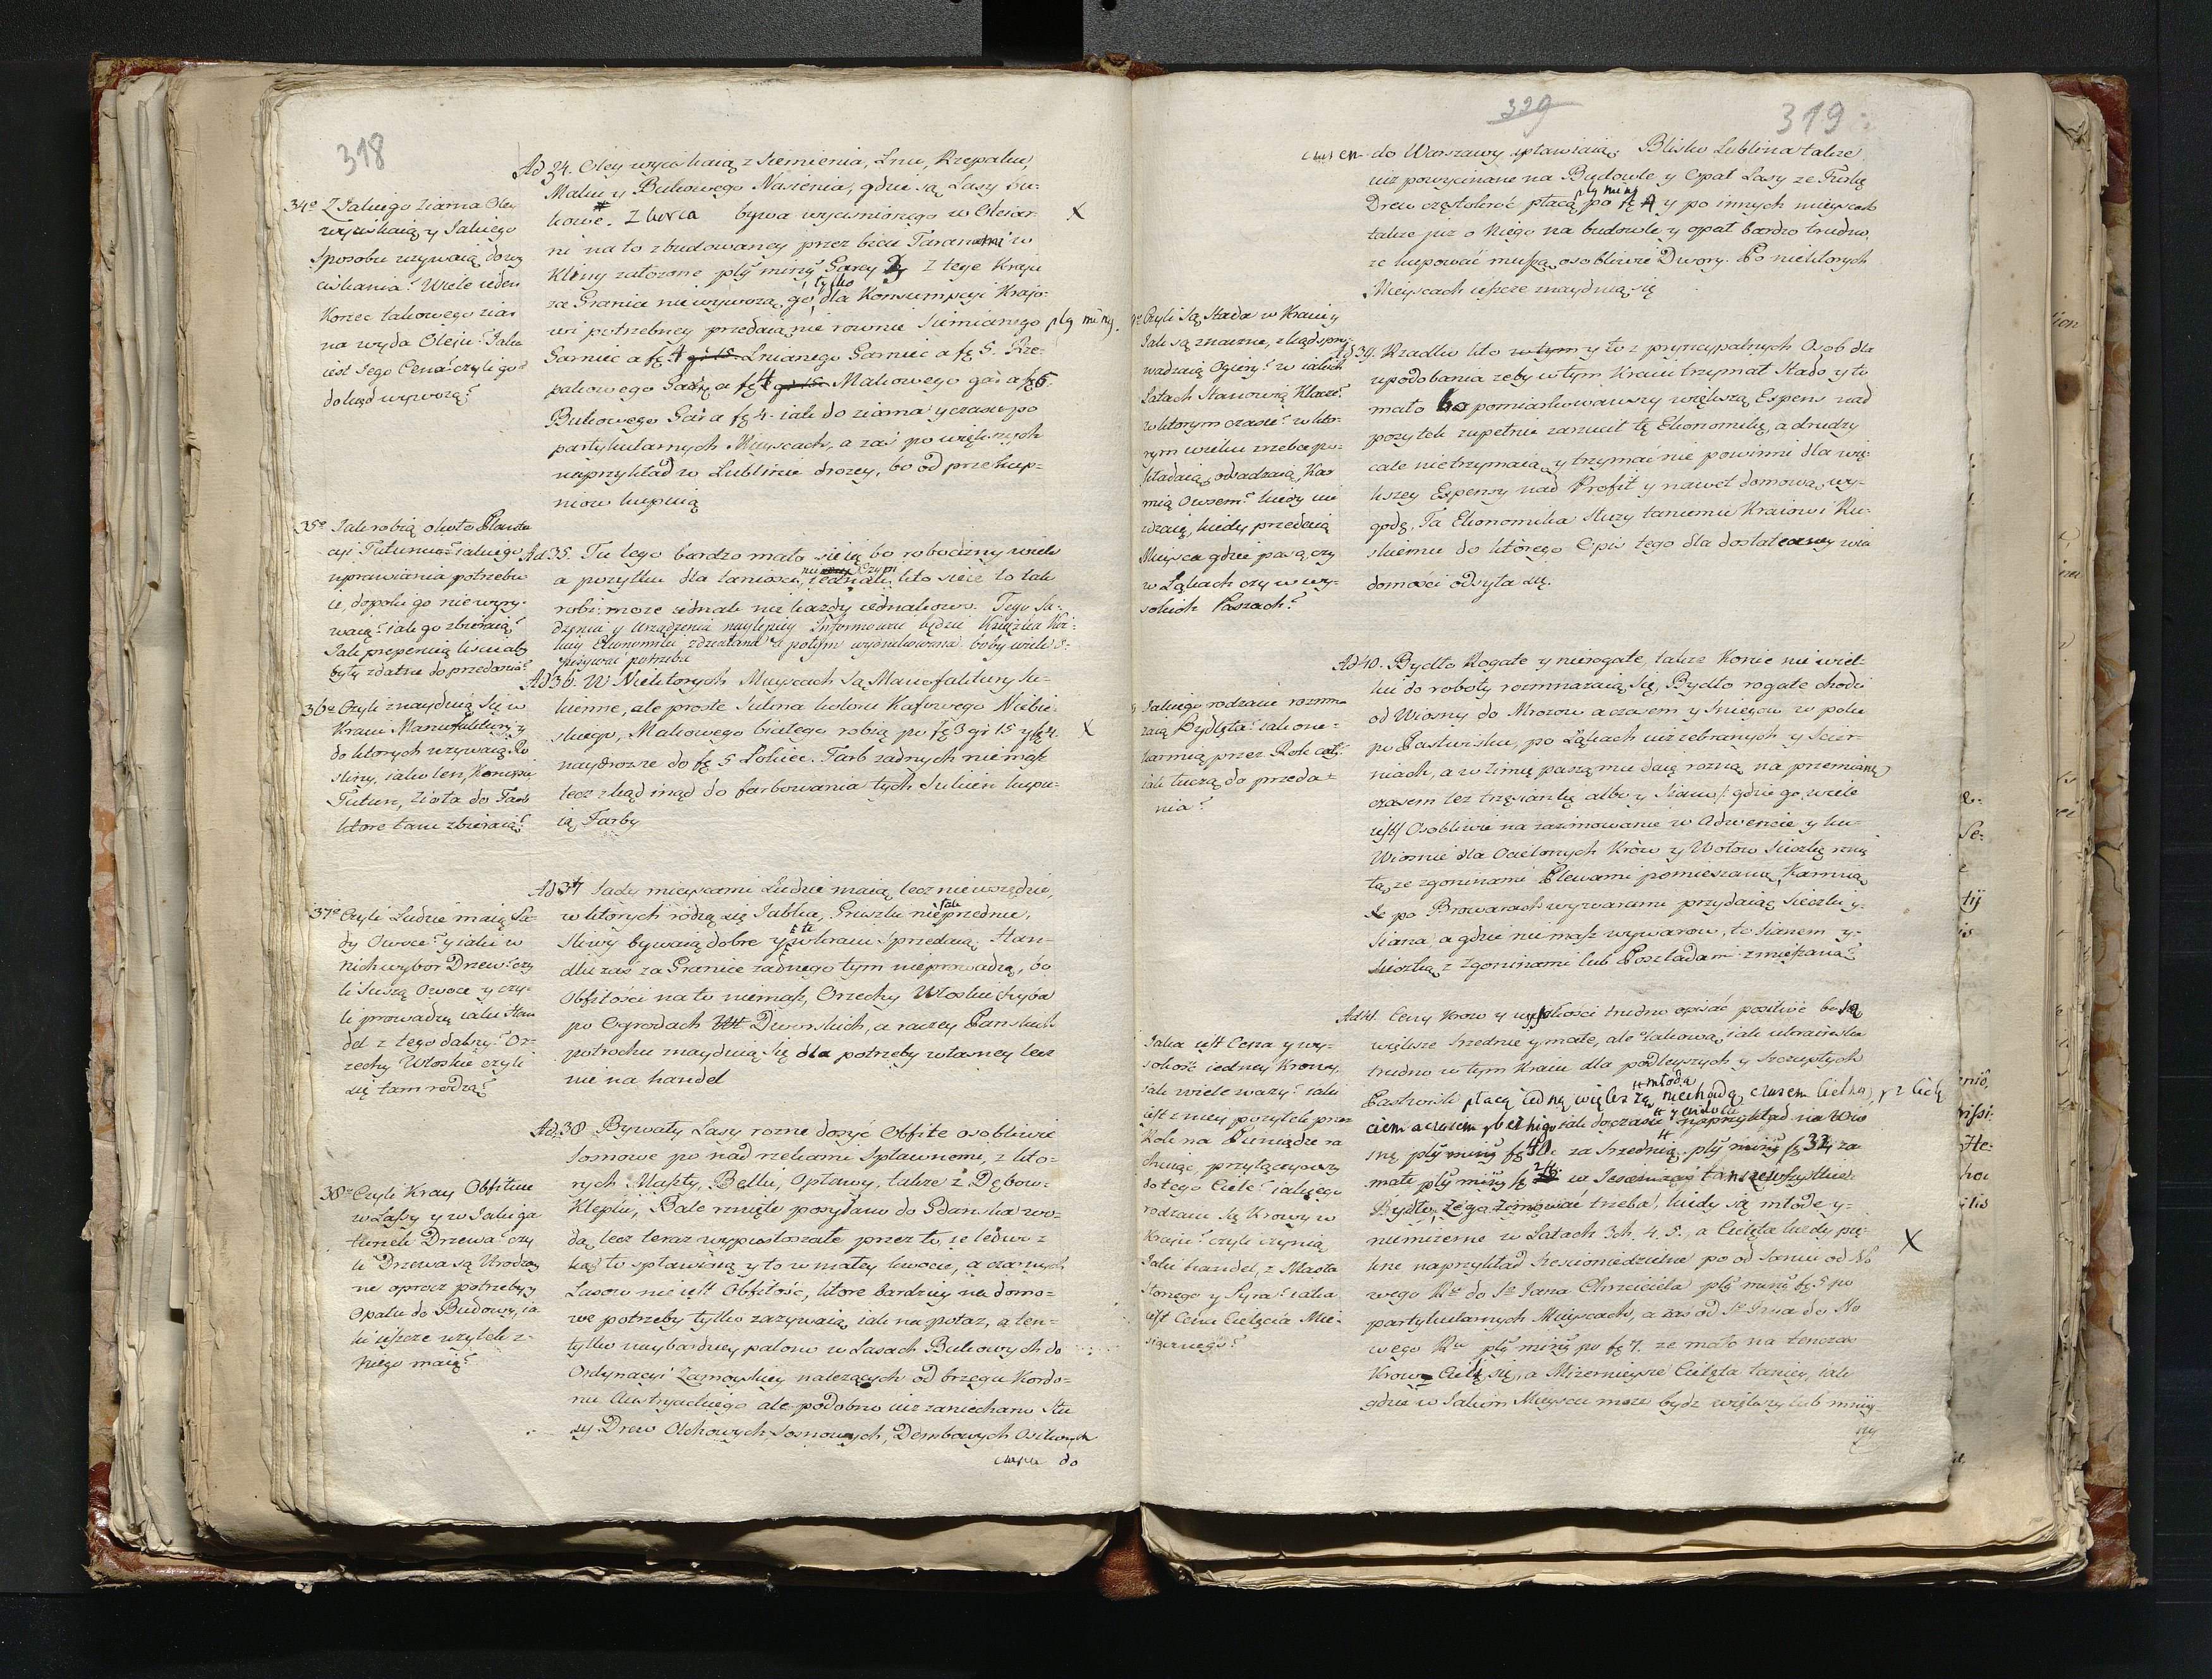 318
34º Z Jakiego Ziarna Oley
wyciskaią y Jakiego
Sposobu uzywaią do wy
ciskania? Wiele ieden
Korzec takowego ziar
na wyda Oleju? Jaka
iest Jego Cena? czyli go
dokąd wywozą?
Ad 34. Oley wyciskaią z Siemienia, Lnu, Rzepaku
Maku y Bukowego Nasienia, gdzie są Lasy bu-
kowe. Z korca bywa wycisnionego w Olejar-
ni na to zbudowaney przez bicie Taranami w
Kliny załozone Garcy Z tego Kraju
za Granice nie wywozą go, tylko dla Konsumpcyi Krajo-
wi potrzebney przedaią nie rownie Siemianego
Garniec a 4 Lnianego Garniec a 5. Rze-
pakowego a 4 Makowego a 6
Bukowego a 4. iak do ziarna y czasu po
partykularnych Mieyscach, a zaś po większych
naprzykład w Lublinie drozey, bo od przekup-
niow kupuią
35º Jak robią około Planta
cyi Tutuniu? iakiego
uprawiania potrzebu
ie, dopoki go nie wyry-
waią? iak go zbieraią?
Jak preperuią liscie aby
były zdatne do przedania?
Ad 35. Tu tego bardzo mało sieią bo robocizny wiele
a pozytku dla taniosci, iednak kto sieie to tak
robi: moze iednak nie kazdy iednakowo. Tego Sa-
dzenia y Urządzenia naylepiey Informować będzie Ksiązka
Ekonomiki zdziałana a potym wydrukowana boby wiele
pisywać potrzeba
36º Czyli znayduią się w
Kraiu Manufaktury y
do ktorych uzywaią Ro
sliny, iako len, Konopie
Tutun, Zioła do Farb
ktore tam zbieraią?
Ad 36. W Niektorych Mieyscach są Manufaktury Su-
kienne, ale proste Sukna koloru Kafowego Niebie-
skiego, Makowego białego robią po 3 15 y 4.
naydrozsze do 5 Łokiec. Farb zadnych niemasz
lecz zkąd inąd do farbowania tych Sukien kupu-
ią Farby
37º Czyli Ludzie maią Sa-
dy Owoce? y iaki w
Nich wybor Drzew? czy
li Suszą Owoce y czy-
li prowadzą iaki Han
del z tego dalszy? Or-
zechy Włoskie czyli
się tam rodzą?
Ad 37 Sady mieyscami Ludzie maią lecz nie wszędzie,
w ktorych rodzą się Jabłka, Gruszki nie tak przednie,
Sliwy bywaią dobre y te w kraiu sprzedaią. Han-
dlu zaś za Granice zadnego tym nieprowadzą, bo
Obfitości na to niemasz, Orzechy Włoskie chyba
po Ogrodach Dworskich, a raczey Pańskich
potrochu znayduią się dla potrzeby własney lecz
nie na handel
38º Czyli Kray Obfituie
w Lassy y w Jaki ga
tunek Drzewa? czy
li Drzewa są Urodzay
ne oprocz potrzeby
Opału do Budowy, ia
ki ieszcze uzytek z-
Niego maią?
Ad 38 Bywały Lasy rozne dosyć Obfite osobliwie
Sosnowe po nad rzekami Spławnemi, z kto-
rych Maszty, Belki, Opławy, takze z Dębow-
Klepki, Bale rznięte posyłano do Gdańska wo-
dą lecz teraz wypustoszałe przez to, ze ledwo z
kąd to spławiaią y to w małey kwocie, a czarnych
Lasow nie iest Obfitość, ktore bardziey na domo-
we potrzeby tylko zazywaią iak na potaz, a ten-
tylko naybardziey palono w Lasach Bukowych do
Ordynacyi Zamoyskiey nalezących od brzegu Kordo-
nu Austryackiego ale podobno iuz zaniechano Stu
sy Drew Olchowych, Sosnowych, Dembowych
do
329
319
do Warszawy spławiaią. Blisko Lublina takze
iuz powycinane na Budowle y Opał Lasy ze Furkę
Drew częstokroć płacą po 4 y po innych mieyscach
takze juz o Niego na budowle y opał bardzo trudno,
ze kupować muszą osobliwie Dwory. Po niektorych
Mieyscach ieszcze znayduią się
Czyli są Stada w Kraiu y
Jak są znaczne, zkąd spro-
wadzaią Ogiery? w iakich
Latach Stanowią Klacze?
w ktorym czasie? w kto-
rym wieku zrzebce po-
kładaią, odsadzaią, Kar
mią Owsem? kiedy uie
zdzaią, kiedy przedaią
Mieysca gdzie pasą, czy
w Łąkach czy w wy-
sokich Paszach?
Ad 39. Rzadko kto w tym y to z pryncypalnych Osob dla
upodobania zeby w tym Kraiu trzymał Stado y to
mało bo pomiarkowawszy większą Expens nad
pozytek zupełnie zarzucił tę Ekonomikę, a drudzy
cale nie trzymaią y trzymać nie powinni dla wię-
kszey Expensy nad Profit y nawet domową wy-
godę. Ta Ekonomika sluzy taniemu Kraiowi Ru-
skiemu do ktorego Opis tego dla dostateczney wia
domości odsyła się.
Jakiego rodzaiu rozmna
zaią Bydlęta? iak one-
karmią przez Rok cały?
iak tuczą do przeda-
nia?
Ad 40. Bydło Rogate y nierogate, takze Konie nie wiel-
kie do roboty rozmnazaią się, Bydło rogate chodzi
od Wiosny do Mrozow a czasem y Sniegow w polu
po Pastwisku, po Łąkach iuz zebranych y Scier-
niach, a w zimę paszą mu daią rozną na przemianę
czasem tez trzęsiankę albo y Siano/: gdzie go wiele
iest/ Osobliwie na zazimowanie w Adwencie y ku-
Wiosnie dla Ocielonych Krów y Wołow Sieczkę rznię
tą ze zgoninami Plewami pomieszaną, Karmią
Je po Browarach wywarami przydaiąc Sieczki y-
Siana, a gdzie nie masz wywarow, to sianem y-
sieczką z Zgoninami lub Poszladami zmięszaną
Jaka iest Cena y wy-
sokość iedney Krowy,
iak wiele wazy? iaki
iest z niey pozytek przez
Rok na Pieniądze ra
chuiąc, przyłączywszy
do tego Ciele? iakiego
rodzaiu są Krowy w
Kraju? czyli czynią
Jaki handel, z Masła
słonego y Syra? iaka
iest Cena Cielęcia Mie-
sięcznego?
Ad 41. Ceny Krow y wysokości trudno opisać positive bo są
większe Srednie y małe, ale Takowe, iak ukrainskie
trudno w tym Kraiu dla podleyszych y Szczupłych
Pastwisk płacą iedną większą młodą niechudą czasem Cielną, y z Cielę
ciem a czasem y bez niego iak do czasu naprzykład na Wio
snę 40 za Srednią 32 za
małe w Jesieni zaś tansze wszystkie
Bydło, ze go zimować trzeba, kiedy są młode y-
niemizerne w Latach 3ch. 4. 5., a Cielęta kiedy pię-
kne naprzykład szesciniedzielne po od Samic od No
wego Rº do Sº Jana Chrzciciela 5 po
partykularnych Mieyscach, a zaś od Sº Jana do No
wego Rº po 7. ze mało na tenczas
Krow Cieli się, a Mizernieysze Cielęta taniey, iak
gdzie w Jakim Mieyscu moze bydz większy lub mniey-
szy